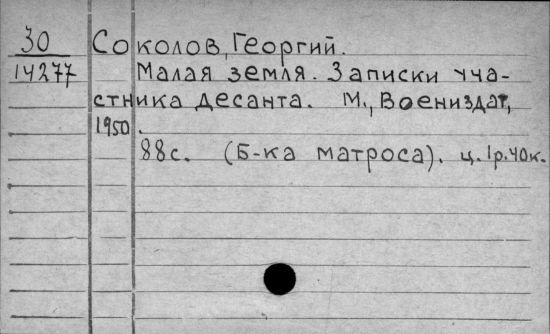 30 Соколов, Георгий.
14277 Малая земля. Записки уча-
стника десанта. М., Воениздат,
1950.
88с. (Б-ка матроса). ц. 1р. 40к.